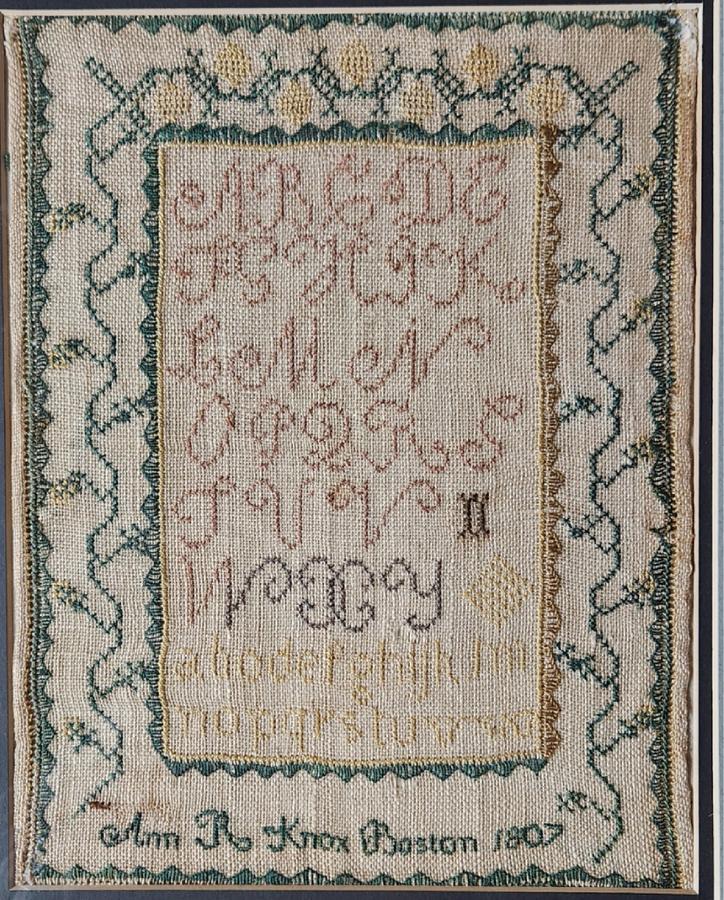 A B C D E
F G H I K
L M N
O P Q R S
T U V
W X Y
a b c d e f g h i j k l m
n o p q r s t u v w
Ann R Knox Boston 1807